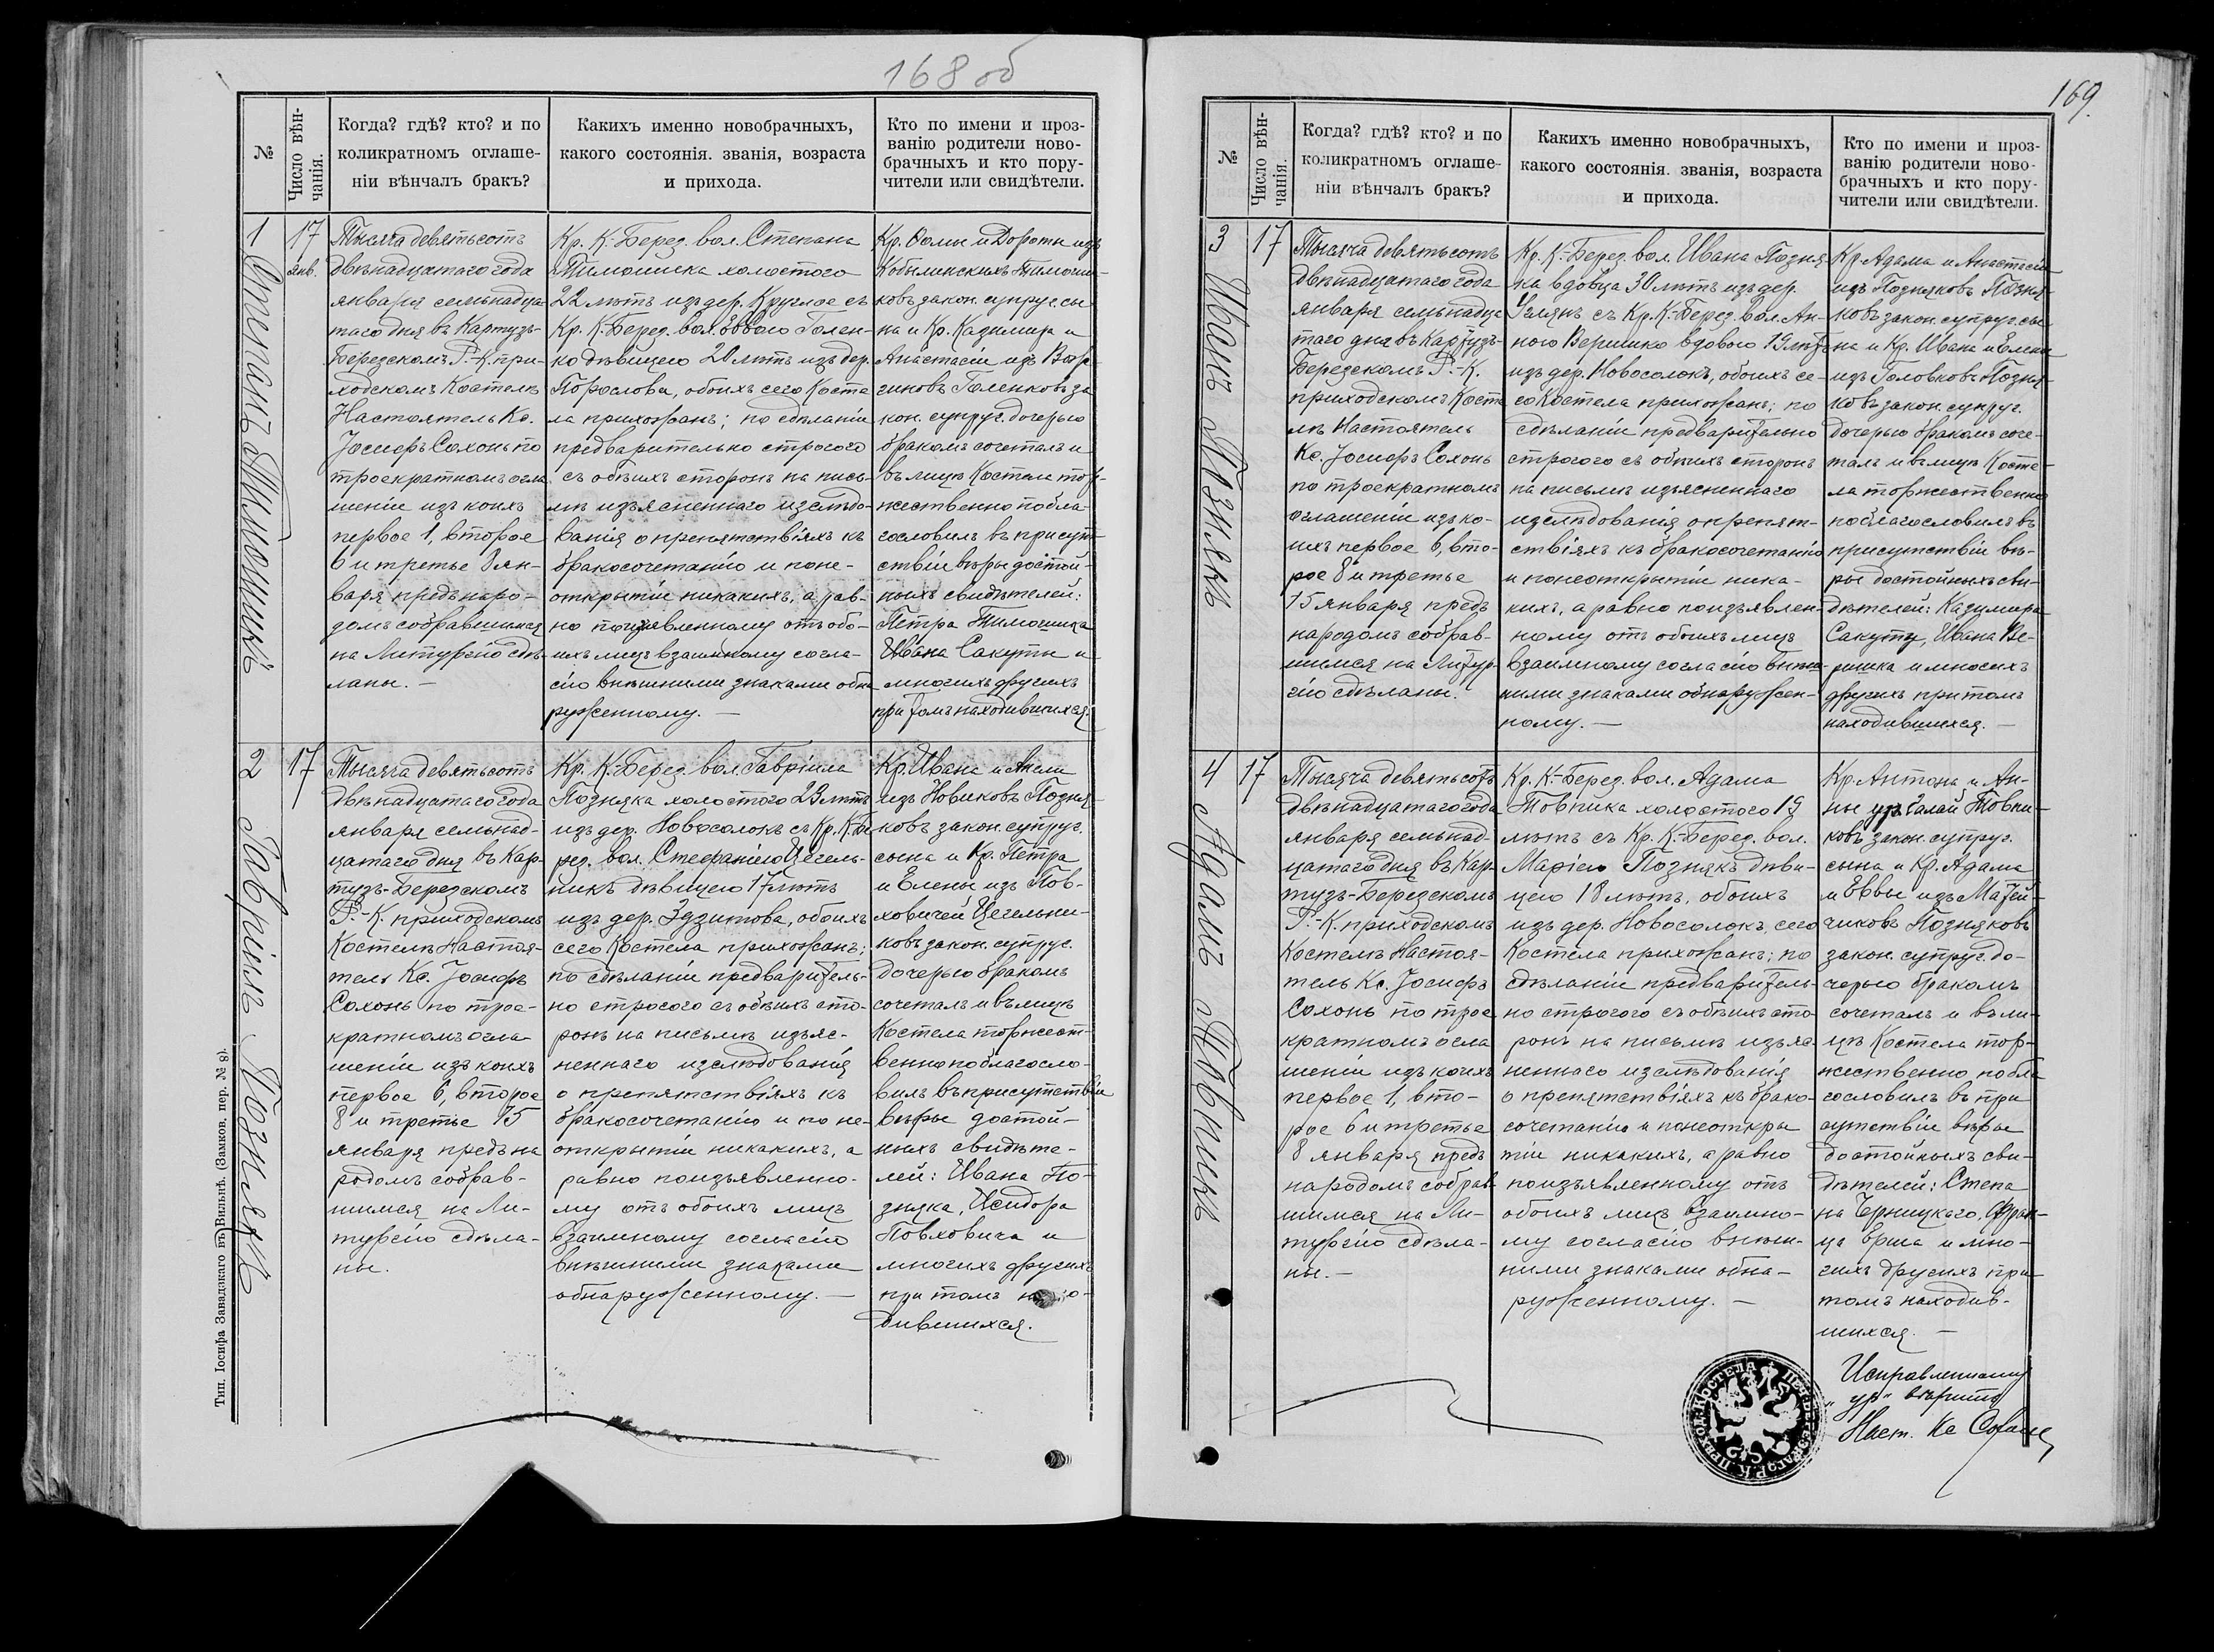 168 об
№
Число вѣн-
чанія.
Когда? гдѣ? кто? и по
коликратномъ оглаше-
ніи вѣнчалъ бракъ?
Какихъ именно новобрачныхъ,
какого состоянія. званія, возраста
и прихода.
Кто по имени и проз-
ванію родители ново-
брачныхъ и кто пору-
чители или свидѣтели.
1
Степанъ Тимошикъ
17
янв.
Тысяча девятьсотъ
двѣнадцатаго года
января семьнадца-
таго дня въ Картузъ-
Березскомъ Р.-К. при-
ходскомъ Костелѣ
Настоятель Кс.
Іосифъ Сохонь по
троекратномъ огла
шеніи изъ коихъ
первое 1, второе
6 и третье 8 ян-
варя предъ наро-
домъ собравшимся
на Литургію сдѣ-
ланы. —
Кр. К.-Берез. вол. Степана
Тимошика холостого
22 лѣтъ изъ дер. Круглое съ
Кр. К.-Берез. вол. Еввою Голен-
ко дѣвицею 20 лѣтъ изъ дер.
Порослова, обоихъ сего Косте
ла прихожанъ; по сдѣланіи
предварительно строгого
съ обѣихъ сторонъ на пись-
мѣ изъясненнаго изслѣдо-
ванія о препятствіяхъ къ
бракосочетанію и поне-
открытіи никакихъ, а рав-
но поизъявленному отъ обо-
ихъ лицъ взаимному согла-
сію внѣшними знаками обна
руженному. —
Кр. Ѳомы и Дороты изъ
Кобылинскихъ Тимоши-
ковъ закон. супруг. сы
на и Кр. Казимира и
Анастасіи изъ Вор-
чиковъ Голенковъ за
кон. супруг. дочерью
бракомъ сочеталъ и
въ лицѣ Костела тор-
жественно побла-
гословилъ въ присут-
ствіи вѣры достой-
ныхъ свидѣтелей:
Петра Тимошика
Ивана Сакуты и
многихъ другихъ
при томъ находившихся.
2
Гавріилъ Познякъ
17
Тысяча девятьсотъ
двѣнадцатаго года
января семьнад-
цатаго дня въ Кар-
тузъ-Березскомъ
Р.-К. приходскомъ
Костелѣ Настоя-
тель Кс. Іосифъ
Сохонь по трое-
кратномъ огла-
шеніи изъ коихъ
первое 6, второе
8 и третье 15
января предъ на
родомъ собрав-
шимся на Ли-
тургію сдѣла-
ны.
Кр. К.-Берез. вол. Гавріила
Позняка холостого 29 лѣтъ
изъ дер. Новосолокъ съ Кр. К. Бе
рез. вол. Стефаніею Цегель-
никъ дѣвицею 17 лѣтъ
изъ дер. Здзитова, обоихъ
сего Костела прихожанъ;
по сдѣланіи предваритель-
но строгого съ обѣихъ сто-
ронъ на письмѣ изъяс-
неннаго изслѣдованія
о препятствіяхъ къ
бракосочетанію и по не-
открытіи никакихъ, а
равно поизъявленно-
му отъ обоихъ лицъ
взаимному согласію
внѣшними знаками
обнаруженному. —
Кр. Ивана и Анели
изъ Новиковъ Позня-
ковъ закон. супруг.
сына и Кр. Петра
и Елены изъ Пов-
ховичей Цегельни-
ковъ закон. супруг.
дочерью бракомъ
сочеталъ и въ лицѣ
Костела торжест-
венно поблагосло-
вилъ въ присутствіи
вѣры достой-
ныхъ свидѣте-
лей: Ивана По-
зняка, Исидора
Повховича и
многихъ другихъ
при томъ нахо-
дившихся.
Тип. Іосифа Завадзкаго въ Вильнѣ. (Замков. пер. № 8).
169.
№
Число вѣн-
чанія.
Когда? гдѣ? кто? и по
коликратномъ оглаше-
ніи вѣнчалъ бракъ?
Какихъ именно новобрачныхъ,
какого состоянія. званія, возраста
и прихода.
Кто по имени и проз-
ванію родители ново-
брачныхъ и кто пору-
чители или свидѣтели.
3
Иванъ Познякъ
17
Тысяча девятьсотъ
двѣнадцатаго года
января семьнадца
таго дня въ Картузъ-
Березскомъ Р.-К.
приходскомъ Косте
лѣ Настоятель
Кс. Іосифъ Сохонь
по троекратномъ
оглашеніи изъ ко-
ихъ первое 6, вто-
рое 8 и третье
15 января предъ
народомъ собрав-
шимся на Литур-
гію сдѣланы.
Кр. К.-Берез. вол. Ивана Позня
ка вдовца 30 лѣтъ изъ дер.
Углянъ съ Кр. К.-Берез. вол. Ан-
ною Веришко вдовою 19 лѣтъ
изъ дер. Новосолокъ, обоихъ се-
го Костела прихожанъ; по
сдѣланіи предварительно
строгого съ обѣихъ сторонъ
на письмѣ изъясненнаго
изслѣдованія о препят-
ствіяхъ къ бракосочетанію
и понеоткрытіи ника-
кихъ, а равно поизъявлен-
ному отъ обоихъ лицъ
взаимному согласію внѣш-
ними знаками обнаружен-
ному. —
Кр. Адама и Анастасіи
изъ Позняковъ Позня-
ковъ закон. супруг. сы
на и Кр. Ивана и Елены
изъ Головковъ Позня-
ковъ закон. супруг.
дочерью бракомъ соче-
талъ и въ лицѣ Косте-
ла торжественно
поблагословилъ въ
присутствіи вѣ-
ры достойныхъ сви-
дѣтелей: Казимира
Сакуту, Ивана Ве-
ришка и многихъ
другихъ при томъ
находившихся. —
4
Адамъ Товпикъ
17
Тысяча девятьсотъ
двѣнадцатаго года
января семьнад-
цатаго дня въ Кар-
тузъ-Березскомъ
Р.-К. приходскомъ
Костелѣ Настоя-
тель Кс. Іосифъ
Сохонь по трое
кратномъ огла
шеніи изъ коихъ
первое 1, вто-
рое 6 и третье
8 января предъ
народомъ собрав-
шимся на Ли-
тургію сдѣла-
ны. —
Кр. К.-Берез. вол. Адама
Товпика холостого 19
лѣтъ съ Кр. К.-Берез. вол.
Маріею Познякъ дѣви-
цею 18 лѣтъ, обоихъ
изъ дер. Новосолокъ, сего
Костела прихожанъ; по
сдѣланіи предваритель-
но строгого съ обѣихъ сто-
ронъ на письмѣ изъяс-
неннаго изслѣдованія
о препятствіяхъ къ брако-
сочетанію и понеоткры
тіи никакихъ, а равно
поизъявленному отъ
обоихъ лицъ взаимно-
му согласію внѣш-
ними знаками обна-
руженному. —
Кр. Антона и Ан-
ны урж Галай Товпи-
ковъ закон. супруг.
сына и Кр. Адама
и Еввы изъ Матей-
чиковъ Позняковъ
закон. супруг. до-
черью бракомъ
сочеталъ и въ ли-
цѣ Костела тор-
жественно побла
гословилъ въ при
сутствіи вѣры
достойныхъ сви-
дѣтелей: Степа
на Черницкаго, Фран-
ца и мно-
гихъ другихъ при
томъ находив-
шихся. —
Исправленному
вѣрить
Наст. Кс Сохонь